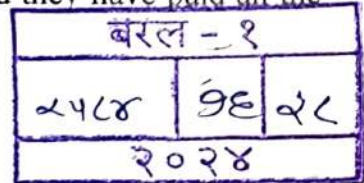 they have paid all the
बरल - १
२५८४ १६ २८
२०२४